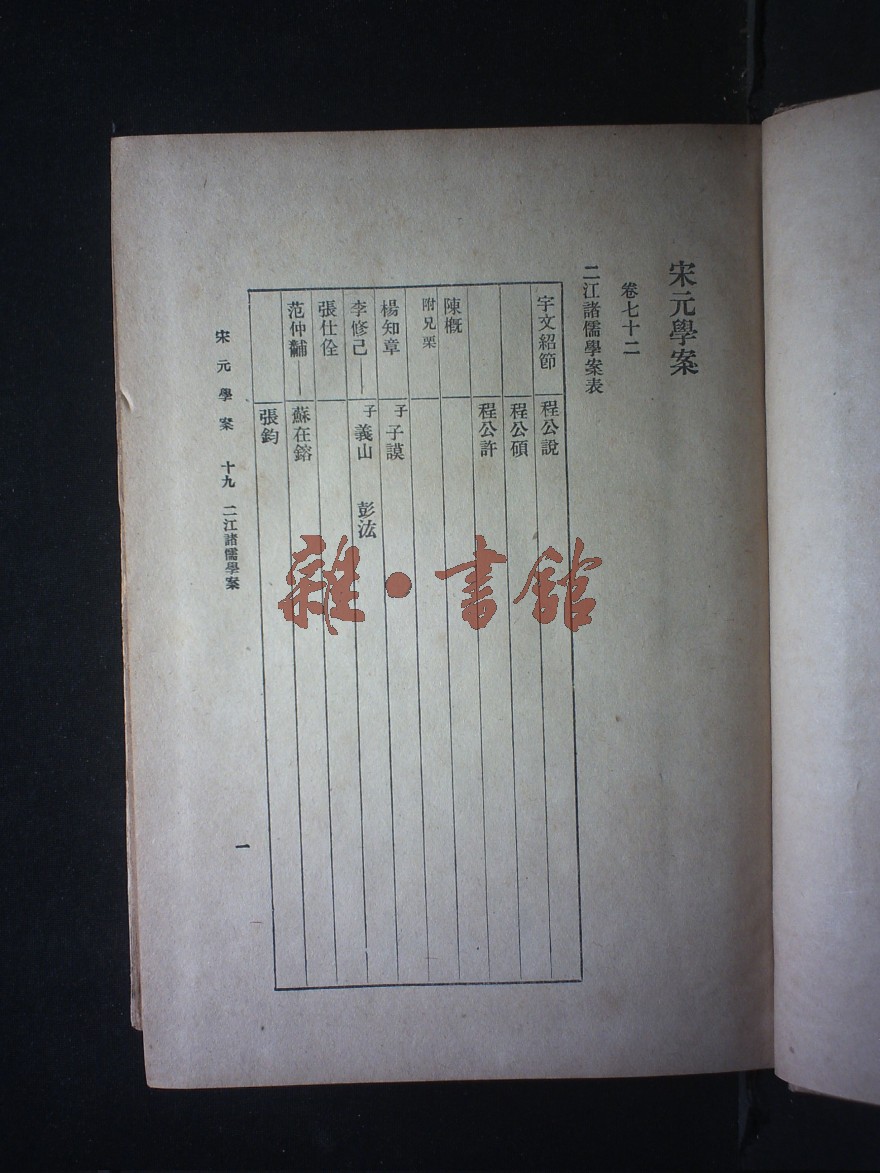 宋元學案
卷七十二
二江諸儒學案表
宇文紹節
程公說
程公碩
程公許
陳概
附兄栗
楊知章
子 子謨
李修己——
子 義山 彭泫
張仕佺
范仲黼——
蘇在鎔
張鈞
宋元學案 十九 二江諸儒學案
一
雜·書館